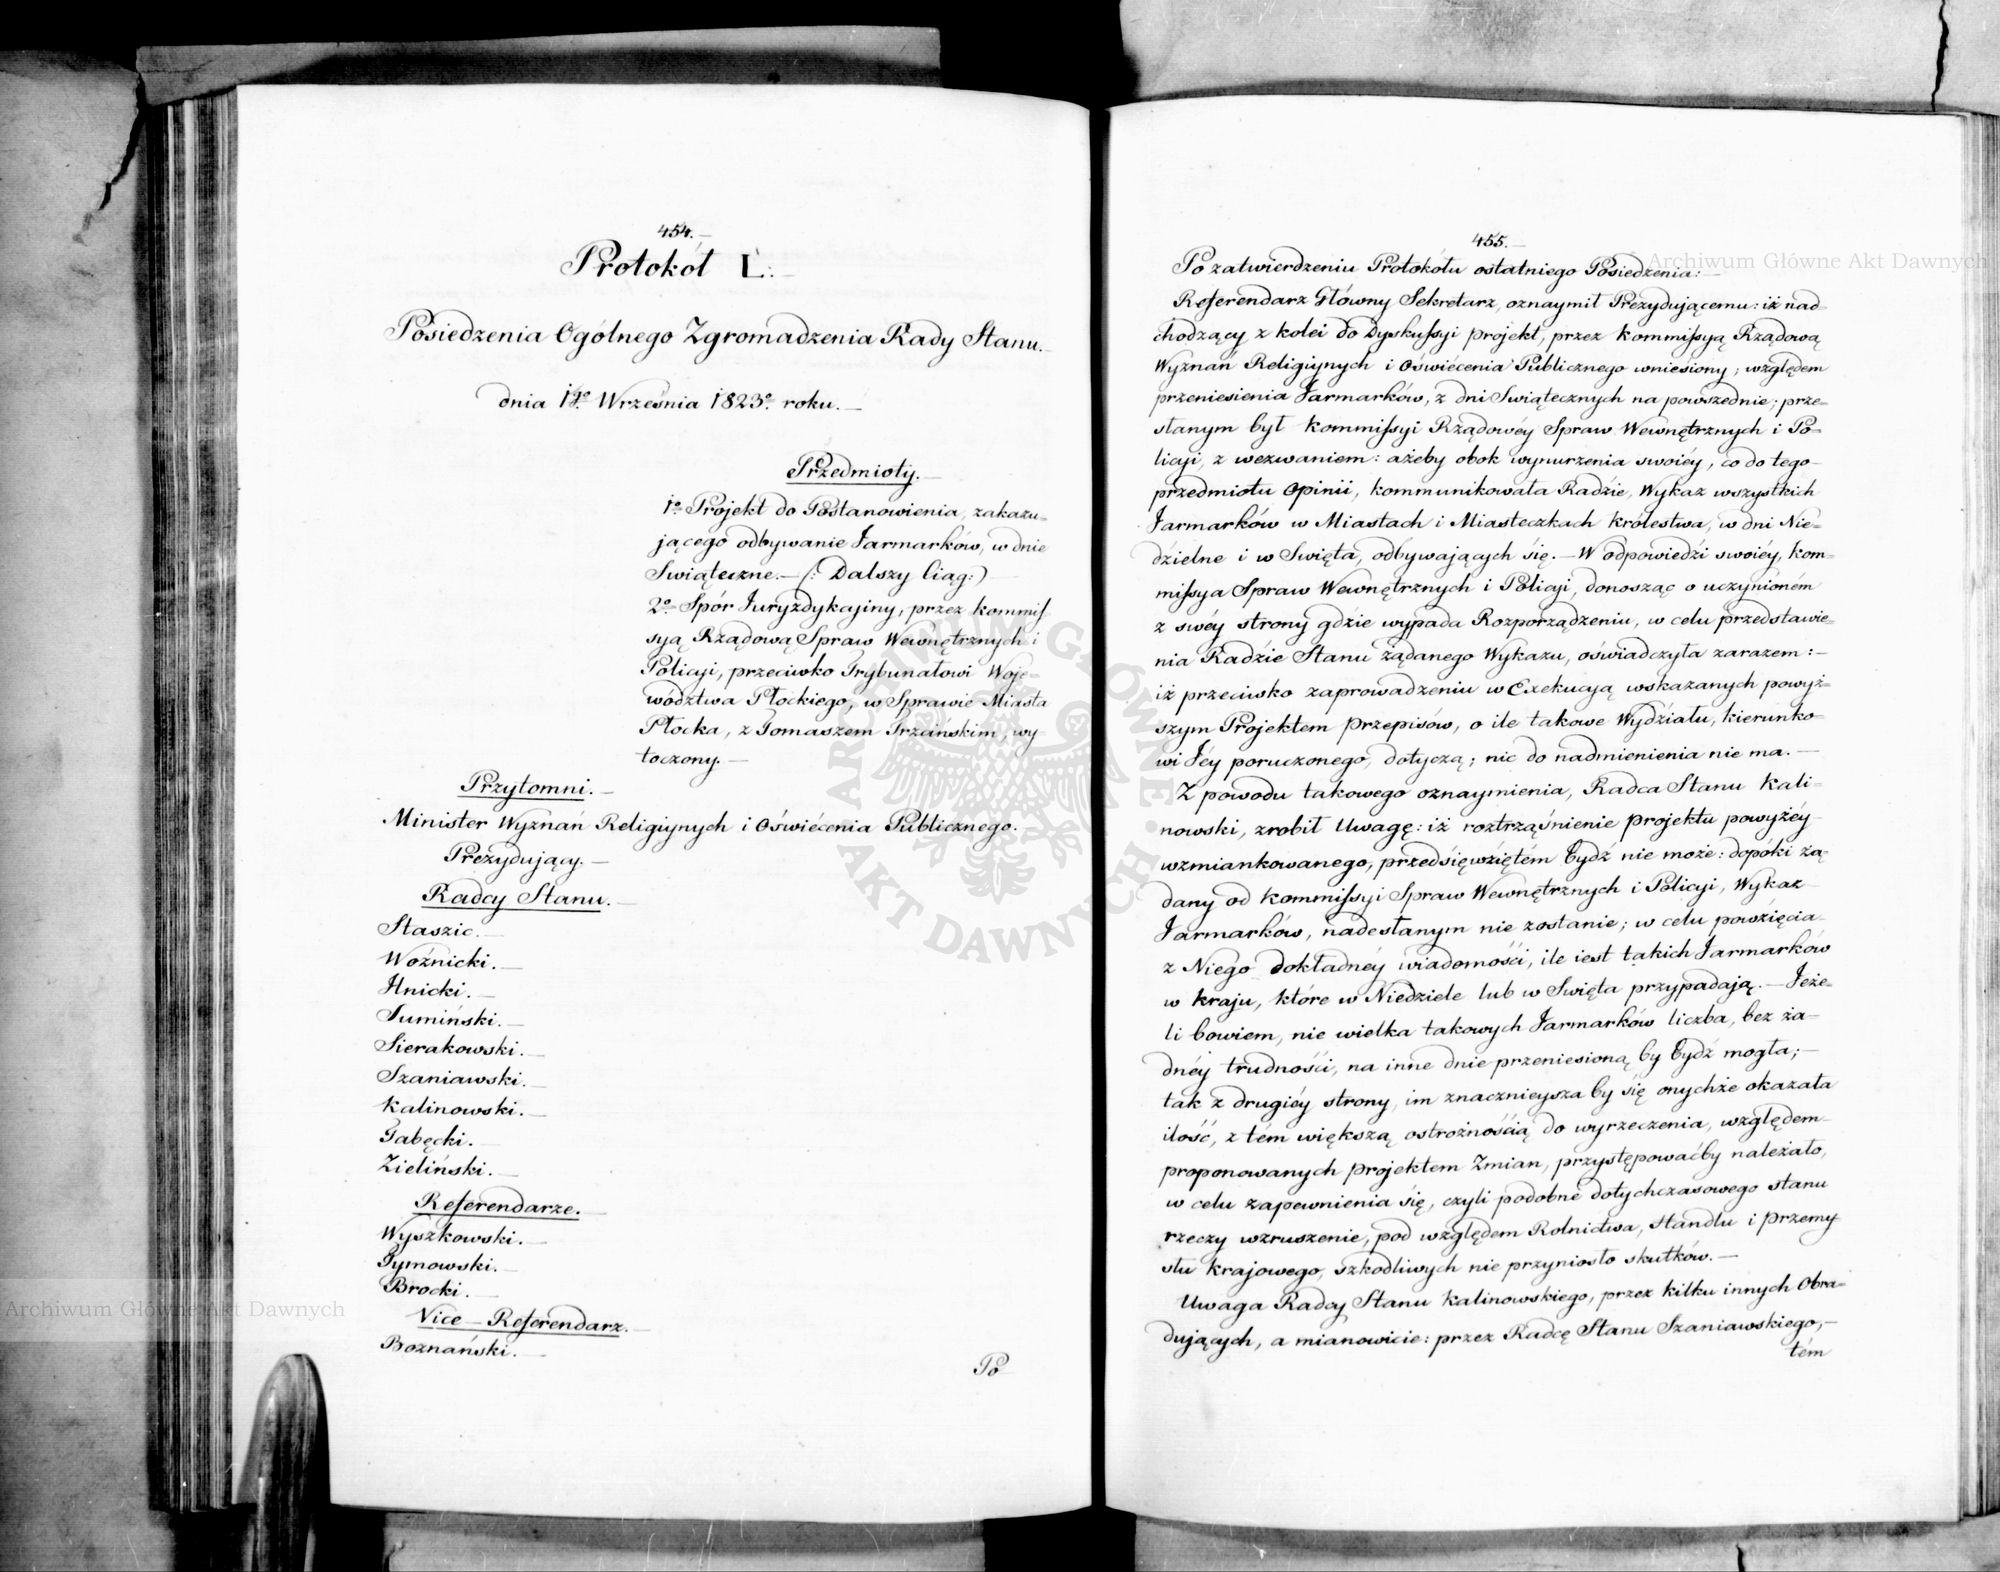 454.
Protokół L.
Posiedzenia Ogólnego Zgromadzenia Rady Stanu.
dnia Września 1823º roku.
Przedmioty.
1º Projekt do Postanowienia, zakazu=
jącego odbywanie Jarmarków, w dnie
Swiąteczne.—(: Dalszy Ciąg:)
2º Spór Juryzdykcyiny, przez Kommis
syą Rządową Spraw Wewnętrznych i
Policyi, przeciwko Trybunałowi Woje=
wództwa Płockiego, w Sprawie Miasta
Płocka, z Tomaszem Trzcińskim, wy
toczony.—
Przytomni.—
Minister Wyznań Religiynych i Oświécenia Publicznego.
Prezydujący.—
Radcy Stanu.—
Staszic.—
Woźnicki.—
Hnicki.—
Tumiński.—
Sierakowski.—
Szaniawski.—
Kalinowski.—
Gabęcki.—
Zieliński.—
Referendarze.—
Wyszkowski.—
Tymowski.—
Brocki.—
Vice—Referendarz.—
Boznański.—
Po
455.
Po zatwierdzeniu Protokółu ostatniego Posiedzenia:—
Referendarz Główny Sekretarz, oznaymił Prezydującemu: iż nad=
chodzący z kolei do Dyskussyi projekt, przez Kommissyą Rządową
Wyznań Religiynych i Oświécenia Publicznego wniesiony; względem
przeniesienia Jarmarków, z dni Swiątecznych na powszednie; prze=
słanym był Kommissyi Rządowey Spraw Wewnętrznych i Po=
licyi, z wezwaniem: ażeby obok wynurzenia swoiéy, co do tego
przedmiotu Opinii, kommunikowała Radzie, Wykaz wszystkich
Jarmarków w Miastach i Miasteczkach Królestwa, w dni Nie=
dzielne i w Swięta, odbywających się.—W odpowiedzi swoiéy, Kom=
missya Spraw Wewnętrznych i Policyi, donosząc o uczynioném
z swéy strony gdzie wypada Rozporządzeniu, w celu przedstawie=
nia Radzie Stanu żądanego Wykazu, oświadczyła zarazem:—
iż przeciwko zaprowadzeniu w Exekucyą wskazanych powyż=
szym Projektem Przepisów, o ile takowe Wydziału, kierunko=
wi Jéy poruczonego, dotyczą; nic do nadmienienia nie ma.—
Z powodu takowego oznaymienia, Radca Stanu Kali=
nowski, zrobił Uwagę: iż roztrząśnienie projektu powyżéy
wzmiankowanego, przedsięwziętém bydź nie może: dopóki żą=
dany od Kommissyi Spraw Wewnętrznych i Policyi, Wykaz
Jarmarków, nadesłanym nie zostanie; w celu powzięcia
z Niego dokładnéy wiadomości, ile iest takich Jarmarków
w Kraju, które w Niedziele lub w Swięta przypadają.—Jeże=
li bowiem, nie wielka takowych Jarmarków liczba, bez ża=
dnéy trudności, na inne dnie przeniesioną by bydź mogła;—
tak z drugiéy strony, im znacznieysza by się onychże okazała
ilość, z tém większą ostrożnością do wyrzeczenia, względem
proponowanych projektem Zmian, przystępowaćby należało,
w celu zapewnienia się, czyli podobne dotychczasowego stanu
rzeczy wzruszenie, pod względem Rolnictwa, Handlu i przemy
słu krajowego, szkodliwych nie przyniosło skutków.—
Uwaga Radcy Stanu Kalinowskiego, przez kilku innych Obra=
dujących, a mianowicie: przez Radcę Stanu Szaniawskiego,—
tém
Archiwum Główne Akt Dawnych
Archiwum Główne Akt Dawnych
ARCHIWUM GŁÓWNE AKT DAWNYCH